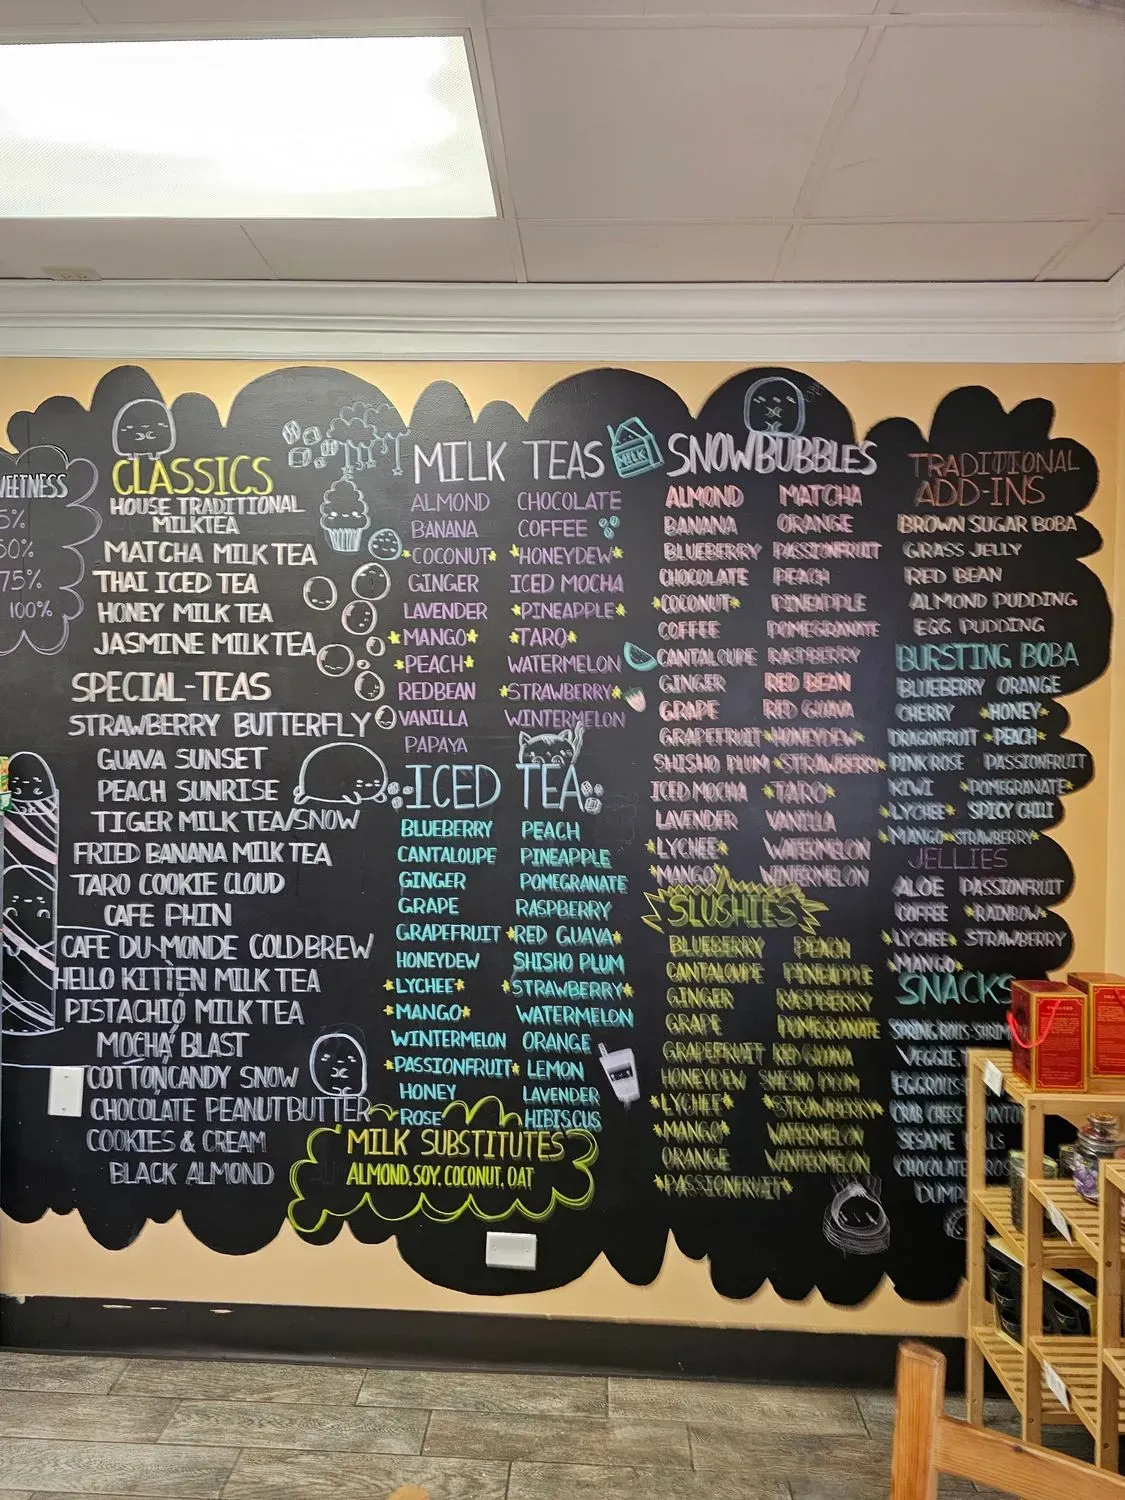 5%
50%
75%
100%
CLASSICS
HOUSE TRADITIONAL
MILKTEA
MATCHA MILK TEA
THAI ICED TEA
HONEY MILK TEA
JASMINE MILK TEA
SPECIAL-TEAS
STRAWBERRY BUTTERFLY
GUAVA SUNSET
PEACH SUNRISE
TIGER MILK TEA/SNOW
FRIED BANANA MILK TEA
TARO COOKIE CLOUD
CAFE PHIN
CAFE DU-MONDE COLDBREW
HELLO KITTEN MILK TEA
PISTACHIO MILK TEA
MOCHA BLAST
COTTONCANDY SNOW
CHOCOLATE PEANUTBUTTER
COOKIES & CREAM
BLACK ALMOND
MILK TEAS
MILK
ALMOND CHOCOLATE
BANANA COFFEE
COCONUT HONEYDEW
GINGER ICED MOCHA
LAVENDER PINEAPPLE
MANGO TARO
PEACH WATERMELON
REDBEAN STRAWBERRY
VANILLA WINTERMELON
PAPAYA
ICED TEA
BLUEBERRY PEACH
CANTALOUPE PINEAPPLE
GINGER POMEGRANATE
GRAPE RASPBERRY
GRAPEFRUIT RED GUAVA
HONEYDEW SHISHO PLUM
LYCHEE STRAWBERRY
MANGO WATERMELON
WINTERMELON ORANGE
PASSIONFRUIT LEMON
HONEY LAVENDER
ROSE HIBISCUS
MILK SUBSTITUTES
ALMOND, SOY, COCONUT, OAT
SNOWBUBBLES
ALMOND MATCHA
BANANA ORANGE
BLUEBERRY PASSIONFRUIT
CHOCOLATE PEACH
COCONUT PINEAPPLE
COFFEE POMEGRANATE
CANTALOUPE RASPBERRY
GINGER RED BEAN
GRAPE RED GUAVA
GRAPEFRUIT HONEYDEW
SHISHO PLUM STRAWBERRY
ICED MOCHA TARO
LAVENDER VANILLA
LYCHEE WATERMELON
MANGO WINTERMELON
SLUSHIES
BLUEBERRY PEACH
CANTALOUPE PINEAPPLE
GINGER RASPBERRY
GRAPE POMEGRANATE
GRAPEFRUIT RED GUAVA
HONEYDEW SHISHO PLUM
LYCHEE STRAWBERRY
MANGO WATERMELON
ORANGE WINTERMELON
PASSIONFRUIT
TRADITIONAL
ADD-INS
BROWN SUGAR BOBA
GRASS JELLY
RED BEAN
ALMOND PUDDING
EGG PUDDING
BURSTING BOBA
BLUEBERRY ORANGE
CHERRY HONEY
DRAGONFRUIT PEACH
PINK ROSE PASSIONFRUIT
KIWI POMEGRANATE
LYCHEE SPICY CHILI
MANGO STRAWBERRY
JELLIES
ALOE PASSIONFRUIT
COFFEE RAINBOW
LYCHEE STRAWBERRY
MANGO
SNACKS
SPRING ROLLS-SHRIM
VEGGIE
EGGROLLS
CRAB CHEESE
SESAME
CHOCOLATE
DUMPL